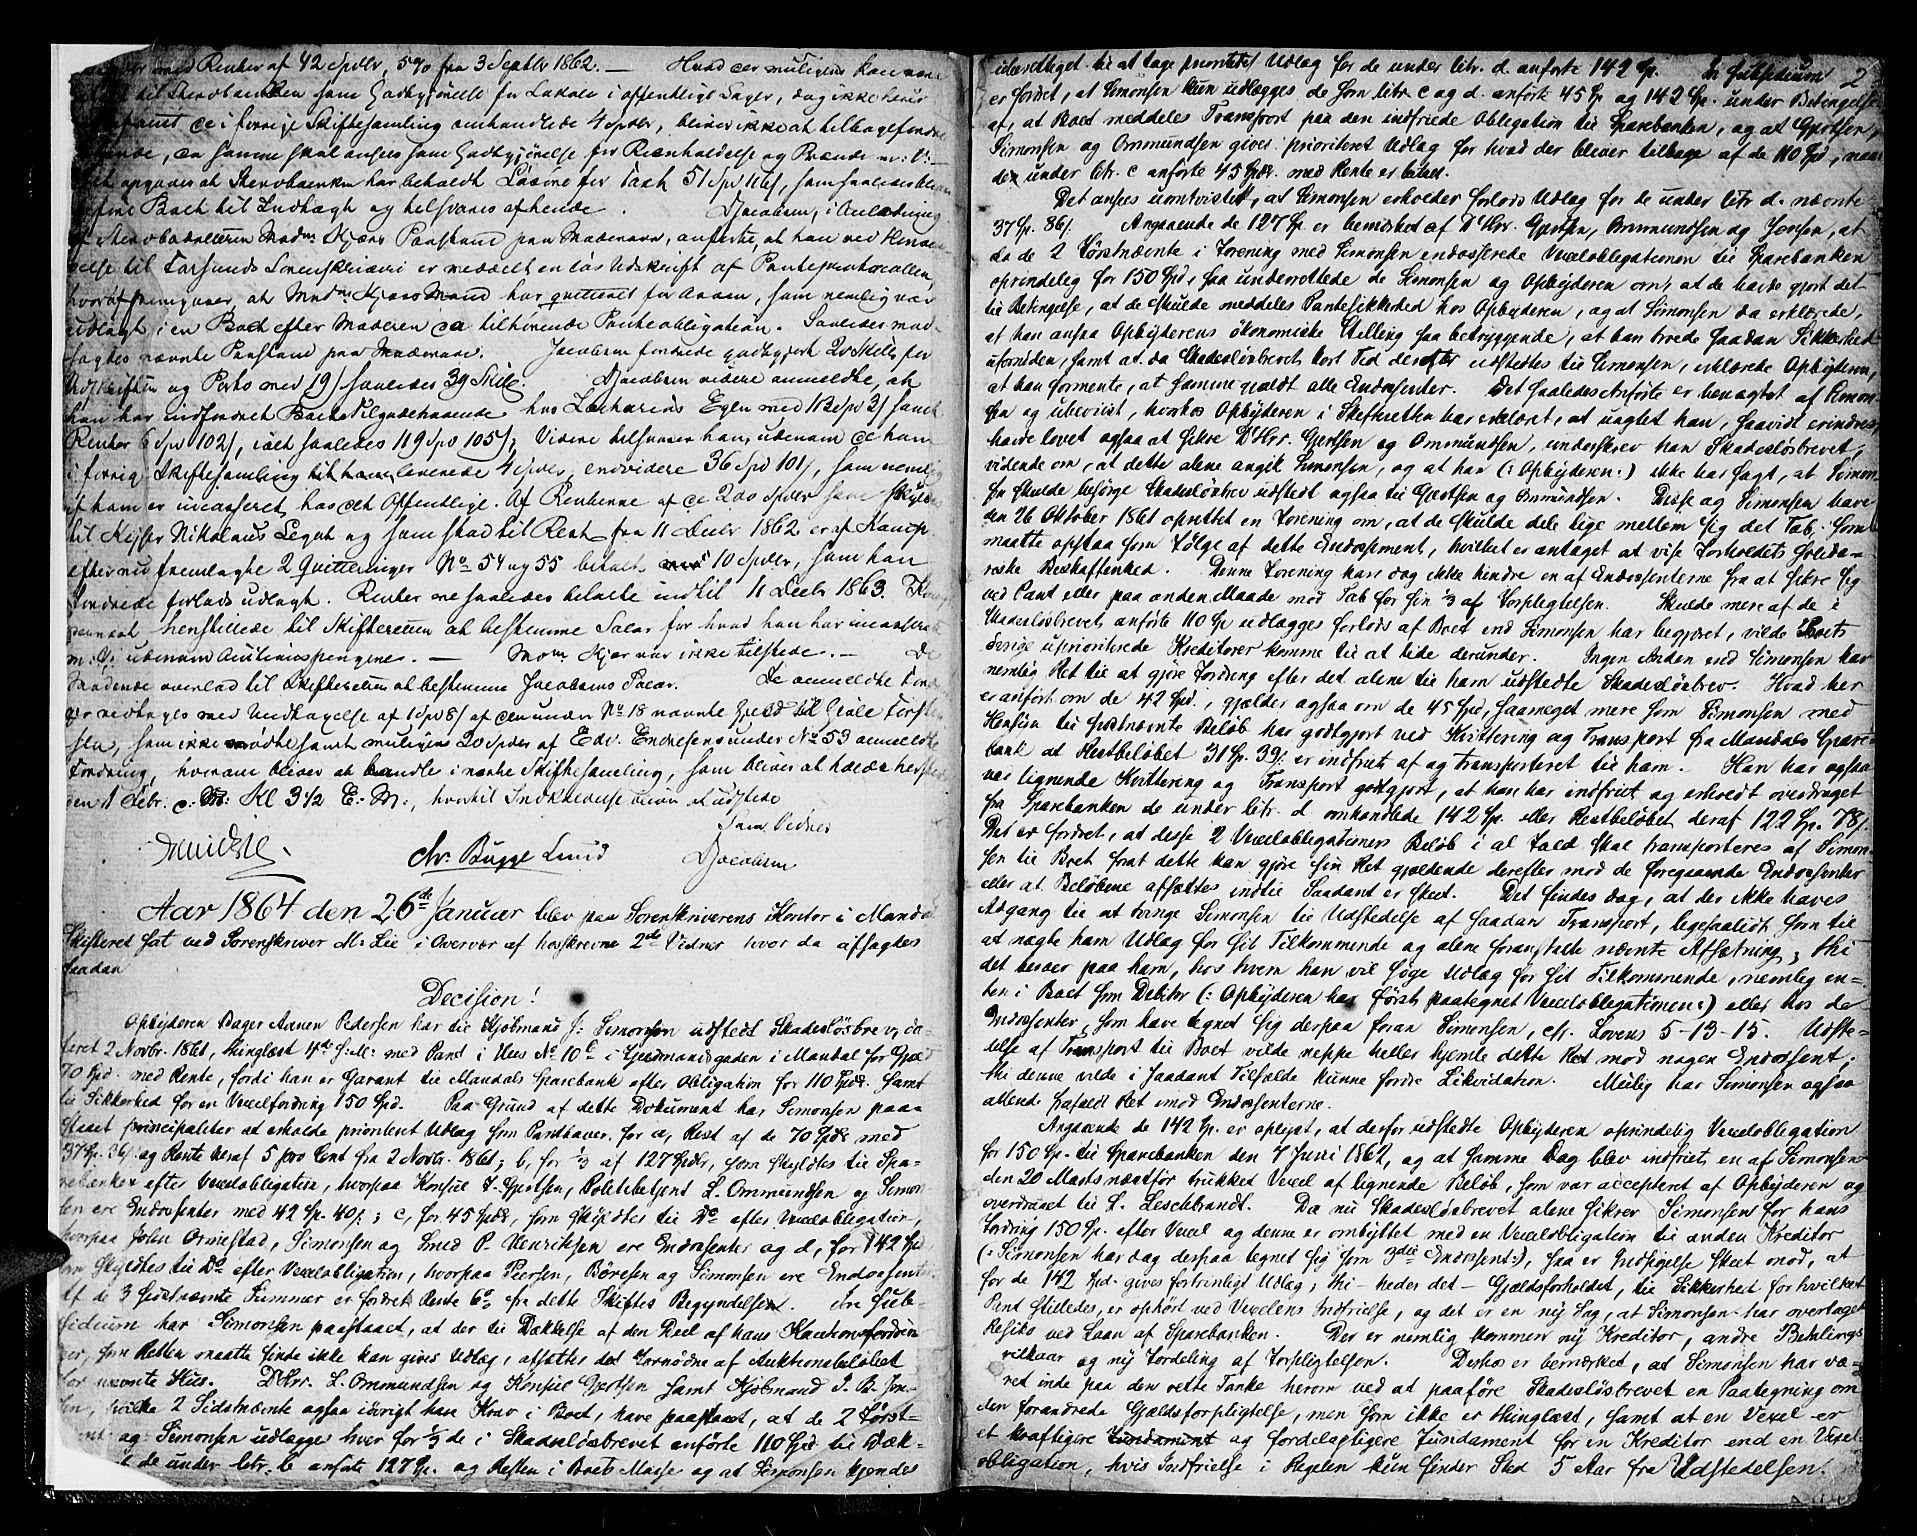 med Renter af 42 Spdlr, 5% fra 3 Septbr 1862. — Hvad mulig kan være
til Skrobanken som Godtgjørelse for Lokale i offentlige Sager, dog ikke herus
i forrige Skiftesamling omhandlede 4 Spdlr, bliver ikke at tilbagefordre
samme skal ansees som Godtgjørelse for Reenholdelse og Brænde m: V:
har beholdt for 51 Spd 116 ß, som saaledes
Boet til Indtægt og tilsvares af hende. Jacobsen, i Anledning
Madm Kjærs Paastand paa anførte, at han ved Henven-
delse til Farsunds Sorenskriveri er meddelt en løs Udskrift af Panteprotocollen,
hvoraf fremgaaer, at Madm Kjærs Mand har qvitteret for Arven, som nemlig var
udlagt i en Boet efter Moderen tilhørende Panteobligation. Saaledes mod-
sagdes nævnte Paastand paa. Jacobsen fordrede godtgjort 20 Skill for
Udskriften og Porto med 19 ß saaledes 39 Skill. Jacobsen videre anmeldte, at
han har indfordret Boets Tilgodehavende hos Zacharias Egen med 112 Spd 3 ß samt
Renter 6 Spd 102 ß, i alt saaledes 119 Spd 105 ß; Videre tilsvarer han, udenom de ham
i forrige Skiftesamling leverede 4 Spdlr, endvidere 36 Spd 101 ß, som nemlig
af ham er incasseret hos det Offentlige. Af Renterne af de 200 Spdlr som skyldes
til Kjøbm Nikolaus Legat og som stod til Rest fra 11 Decbr 1862 er af Kamp
efter nu fremlagte 2 Qvitteringer No 54 og 55 betalt 10 Spdlr, som han
fordrede forlods udlagt. Renter ere saaledes betalte indtil 11 Decbr 1863.
henstillede til Skifteretten at bestemme Salær for hvad han har incasseret
m: V: udenom Auctionspengene. — Mom Kjær var ikke tilstede. — De
Mødende overlod til Skifteretten at bestemme Jacobsens Salær. De anmeldte Ford-
ringer vedtages med Undtagelse af 1 Spd 8 ß af den under No 18 nævnte Gjeld til
som ikke mødte samt muligens 20 Spdlr af Edv. Endresens under No 53 anmeldte
Fordring, hvorom bliver at handle i næste Skiftesamling, som bliver at holde herstedes
den 1 Febr. c. Kl 3½ E: M:, hvortil Indkaldelse bliver at udstede
Som Vidner
Chr. Bugge Lund Jacobsen
Aar 1864 den 26de Januar blev paa Sorenskriverens Kontor i Mandal
Skifteret sat ved Sorenskriver M: Lie i Overvær af hosskrevne 2de Vidner hvor da afsagdes
saadan
Decision!
Opbyderen Bager Aanen Pedersen har til Kjøbmand J: Simonsen udstedt Skadesløsbrev, da-
teret 2 Novbr. 1861, thinglæst 4de s: M: med Pant i Hus No 10 i Gjedmansgaden i Mandal for Gjæld
70 Spd. med Rente, fordi han er Garant til Mandals Sparebank efter Obligation for 110 Spdr. samt
til Sikkerhed for en Vexelfordring 150 Spd. Paa Grund af dette Dokument har Simonsen paa-
staaet principaliter at erholde prioritert Udlæg som Panthaver for a, Rest af de 70 Spdr med
37 Sp. 86 ß og Rente deraf 5 pro Cent fra 2 Novbr. 1861; b, for ⅓ af 127 Spdlr, som skyldtes til Spa-
rebanken efter Vexelobligation, hvorpaa Konsul T. Gjertsen, Politibetjent L. Ommundsen og Simon-
sen ere Endossenter med 42 Sp. 40 ß; c, for 45 Spdr, som skyldtes til Do efter Vexelobligation,
hvorpaa John Ormestad, Simonsen og Smed P. Henriksen ere Endossenter og d, for 142 Spd
som skyldtes til Do efter Vexelobligation, hvorpaa Peersen, Børesen og Simonsen ere Endossenter.
Af de 3 sidstnævnte Summer er fordret Rente 6% fra dette Skiftes Begyndelse. In Sub-
sidium har Simonsen paastaaet, at der til Dækkelse af den Deel af hans Kautionsfordrin-
ger, som Retten maatte finde ikke kan gives Udlæg, afsættes det Fornødne af Auktionsbeløbet
for nævnte Hus. D'Hrr. L. Ommundsen og Konsul Gjertsen samt Kjøbmand J. B. Jon-
sen, hvilke 2 Sidstnævnte ogsaa iøvrigt have Krav i Boet, have paastaaet, at de 2 Først-
nævnte og Simonsen udlægges hver for ⅓ de i Skadesløsbrevet anførte 110 Spd til Dæk-
kelse af de under litr. b anførte 127 Sp. og Resten i Boets Masse og at Simonsen kjendes
2
uberettiget til at tage prioritet Udlæg for de under litr. d. anførte 142 Sp. In subsidium
er fordret, at Simonsen kun udlægges de som litr. c og d. anførte 45 Sp og 142 Sp. under Betingelse
af, at Boet meddeles Transport paa den indfriede Obligation til Sparebanken, og at Gjertsen,
Simonsen og Ommundsen gives prioriteret Udlæg for hvad der bliver tilbage af de 110 Spd, naar
de under litr. c anførte 45 Spdr. med Rente er betalt.
Det ansees utvivlsomt, at Simonsen erholder forlods Udlæg for de under litr d. nævnte
37 Sp. 86 ß. Angaaende de 127 Sp. er bemærket af D'Hrr. Gjertsen, Ommundsen og Jonsen, at
da de 2 Førstnævnte i Forening med Simonsen endosserede Vexelobligationen til Sparebanken
oprindelig for 150 Spd, saa underrettede de Simonsen og Opbyderen om, at de havde gjort det
til Betingelse, at de skulde meddeles Pantesikkerhed hos Opbyderen, og at Simonsen da erklærede,
at han ansaa Opbyderens økonomiske Stilling saa betryggende, at han troede saadan Sikkerhed
ufornøden, samt at da Skadesløsbrevet kort Tid derefter udstedtes til Simonsen, erklærede Opbyderen,
at han formente, at samme gjaldt alle Endossenter. Det saaledes Anførte er benægtet af Simon-
sen og ubevist, hvorhos Opbyderen i Skifteretten har erklæret, at uagtet han, saavidt erindres,
havde lovet ogsaa at sikre D'Hrr. Gjertsen og Ommundsen, underskrev han Skadesløsbrevet,
vidende om, at dette alene angik Simonsen, og at han (: Opbyderen :) ikke har sagt, at Simon-
sen skulde besørge Skadesløsbrev udstedt ogsaa til Gjertsen og Ommundsen. Disse og Simonsen have
den 26 Oktober 1861 oprettet en Forening om, at de skulde dele lige mellem sig det Tab, som
maatte opstaa som Følge af dette Endossement, hvilket er antaget at vise Forholdets solida-
riske Beskaffenhed. Denne Forening kan dog ikke hindre en af Endossenterne fra at sikre sig
ved Pant eller paa anden Maade mod Tab for sin ⅓ af Forpligtelsen. Skulde mere af de i
Skadesløsbrevet anførte 110 Sp udlægges forlods af Boet end Simonsen har begjæret, vilde Boets
øvrige uprioriterede Kreditorer komme til at lide derunder. Ingen Anden end Simonsen har
nemlig Ret til at gjøre Fordring efter det alene til ham udstedte Skadesløsbrev. Hvad her
er anført om de 42 Spd., gjælder ogsaa om de 45 Spd, saameget mere som Simonsen med
Hensyn til sidstnævnte Beløb har godtgjort ved Kvittering og Transport fra Mandals Spare-
bank at Restbeløbet 31 Sp. 39 ß er indfriet af og transporteret til ham. Han har ogsaa
ved lignende Kvittering og Transport godtgjort, at han har indfriet og erholdt overdraget
fra Sparebanken de under litr. d omhandlede 142 Sp. eller Restbeløbet deraf 122 Sp. 78 ß.
Det er fordret, at desse 2 Vexelobligationers Beløb i al Fald skal transporteres af Simon-
sen til Boet forat dette kan gjøre sin Ret gjældende derefter mod de foregaaende Endossenter
eller at Beløbene afsættes indtil Saadant er skeet. Det findes dog, at der ikke haves
Adgang til at tvinge Simonsen til Udstedelse af saadan Transport, ligesaalidt som til
at nægte ham Udlæg for sit Tilkommende og alene foranstalte nævnte Afsætning; thi
det beroer paa ham, hos hvem han vil søge Udlæg for sit Tilkommende, nemlig en-
ten i Boet som Debitor (: Opbyderen har først paategnet Vexelobligationen :) eller hos de
Endossenter, som have tegnet sig derpaa foran Simonsen, cfr. Lovens 5-13-15. Udste-
delse af Transport til Boet vilde neppe heller hjemle dette Ret mod nogen Endossent;
thi denne vilde i saadant Tilfælde kunne fordre Likvidation. Mulig har Simonsen ogsaa
allene frafaldt Ret mod Endossenterne.
Angaaende de 142 Sp. er oplyst, at derfor udstedte Opbyderen oprindelig Vexelobligation
for 150 Sp. til Sparebanken den 7 Juni 1862, og at samme Dag blev indfriet en af Simonsen
den 20 Marts næstfor trukket Vexel af lignende Beløb, som var accepteret af Opbyderen og
overdraget til L. Leschbrandt. Da nu Skadesløsbrevet alene sikrer Simonsen for hans
Fordring 150 Sp. efter Vexel og denne er ombyttet med en Vexelobligation til anden Kreditor
(: Simonsen har dog derpaa tegnet sig som 3die Endossent :), saa er Indsigelse skeet mod, at
for de 142 Spd. gives fortrinligt Udlæg; thi – hedes det – Gjældsforholdet, til Sikkerhed for hvilket
Pant stilledes, er ophørt ved Vexelens Indfrielse, og det er en ny Sag, at Simonsen har overtaget
Risiko ved Laan af Sparebanken. Der er nemlig kommen ny Kreditor, andre Betalings-
vilkaar og ny Fordeling af Forpligtelsen. Derhos er bemærket, at Simonsen har væ-
ret inde paa den rette Tanke herom ved at paaføre Skadesløsbrevet en Paategning om
den forandrede Gjældsforpligtelse, men som ikke er thinglæst, samt at en Vexel er
et kraftigere Fundament og fordelagtigere Fundament for en Kreditor end en Vexel-
obligation, hvis Indfrielse i Regelen kun finder Sted 5 Aar fra Udstedelsen.